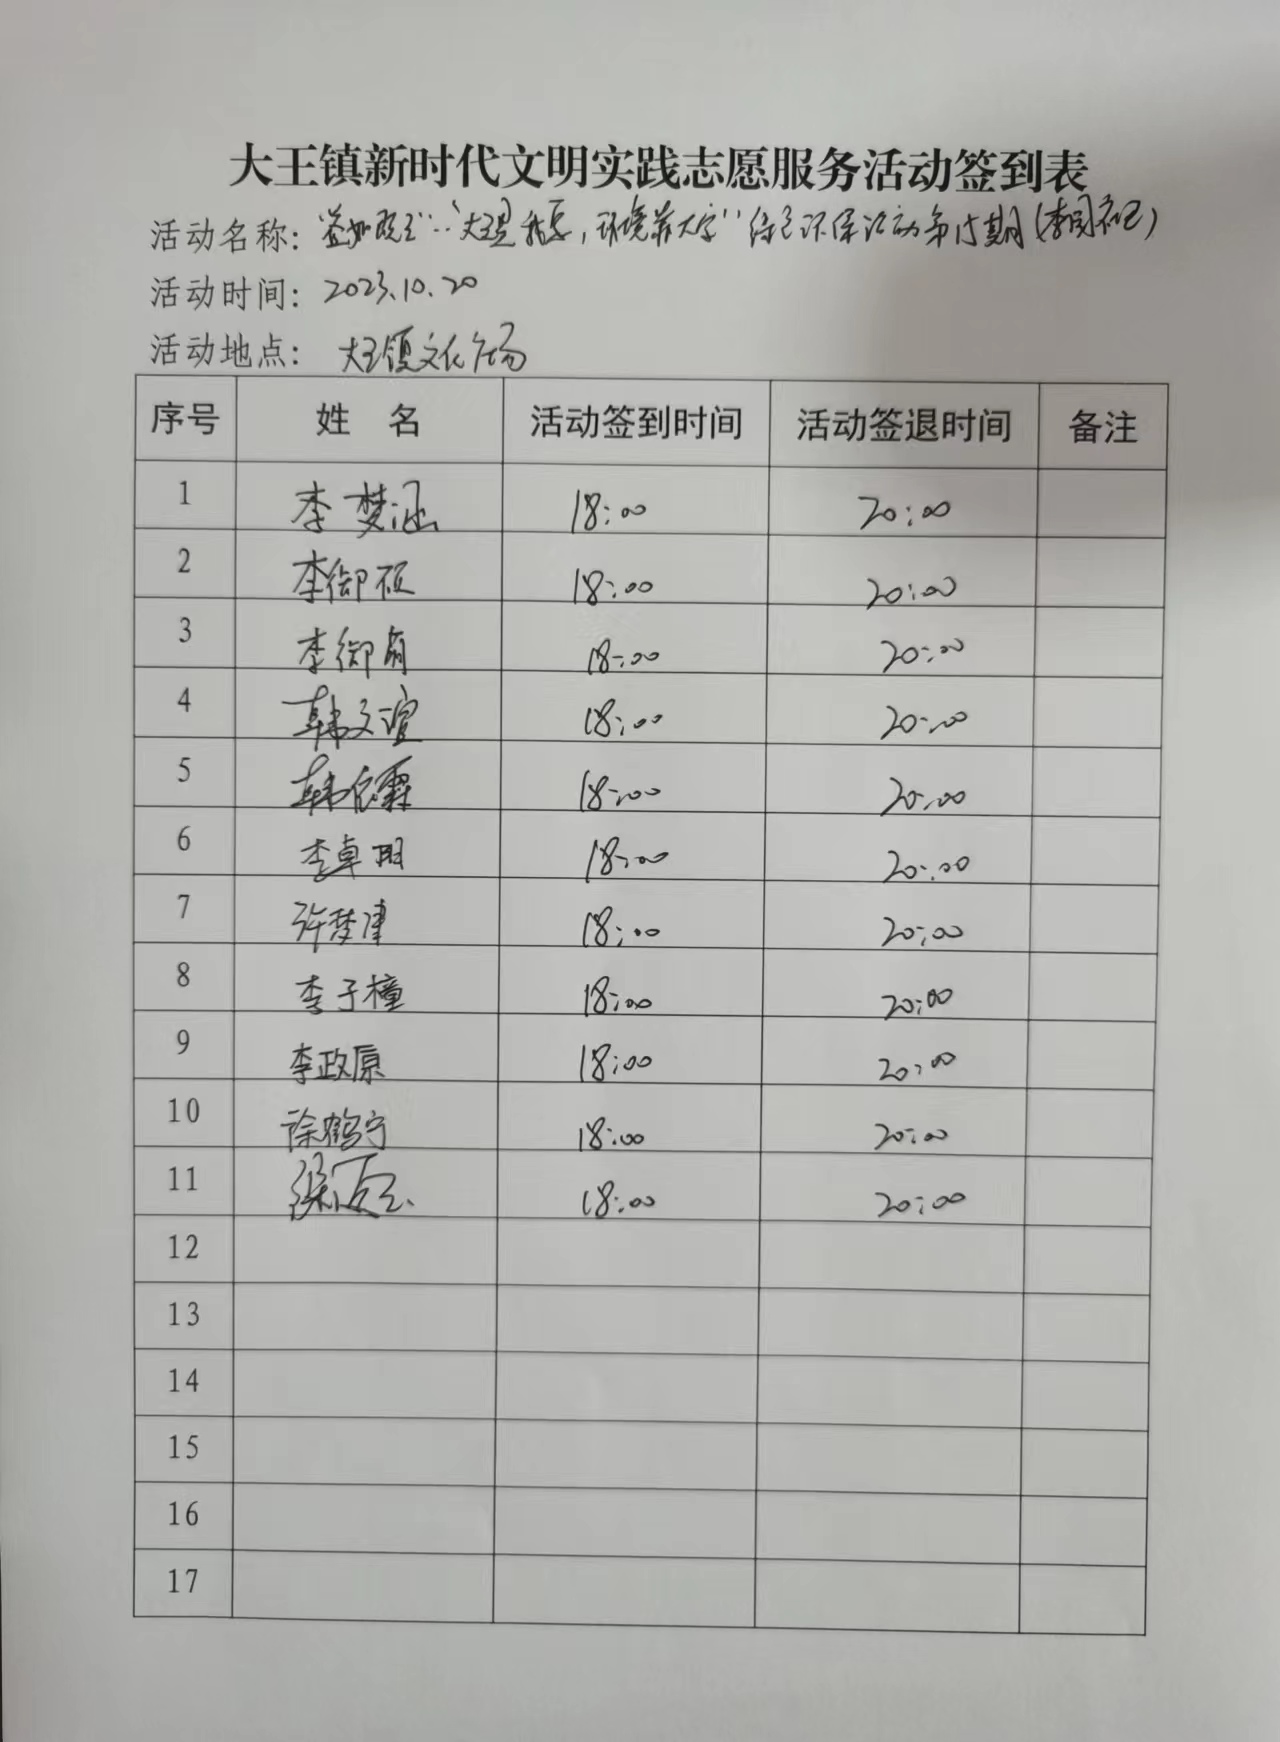 大王镇新时代文明实践志愿服务活动签到表
活动名称：益如既王："大王是我家，环境靠大家"绿色环保活动第15期(李园社区)
活动时间：2023.10.20
活动地点：大王镇文化广场
序号 姓 名 活动签到时间 活动签退时间 备注
1 李梦涵 18:00 20:00
2 李御硕 18:00 20:00
3 李御 18:00 20:00
4 韩文谊 18:00 20:00
5 韩依霖 18:00 20:00
6 李卓玥 18:00 20:00
7 许梦津 18:00 20:00
8 李子橦 18:00 20:00
9 李政原 18:00 20:00
10 徐鹤宁 18:00 20:00
11 18:00 20:00
12
13
14
15
16
17